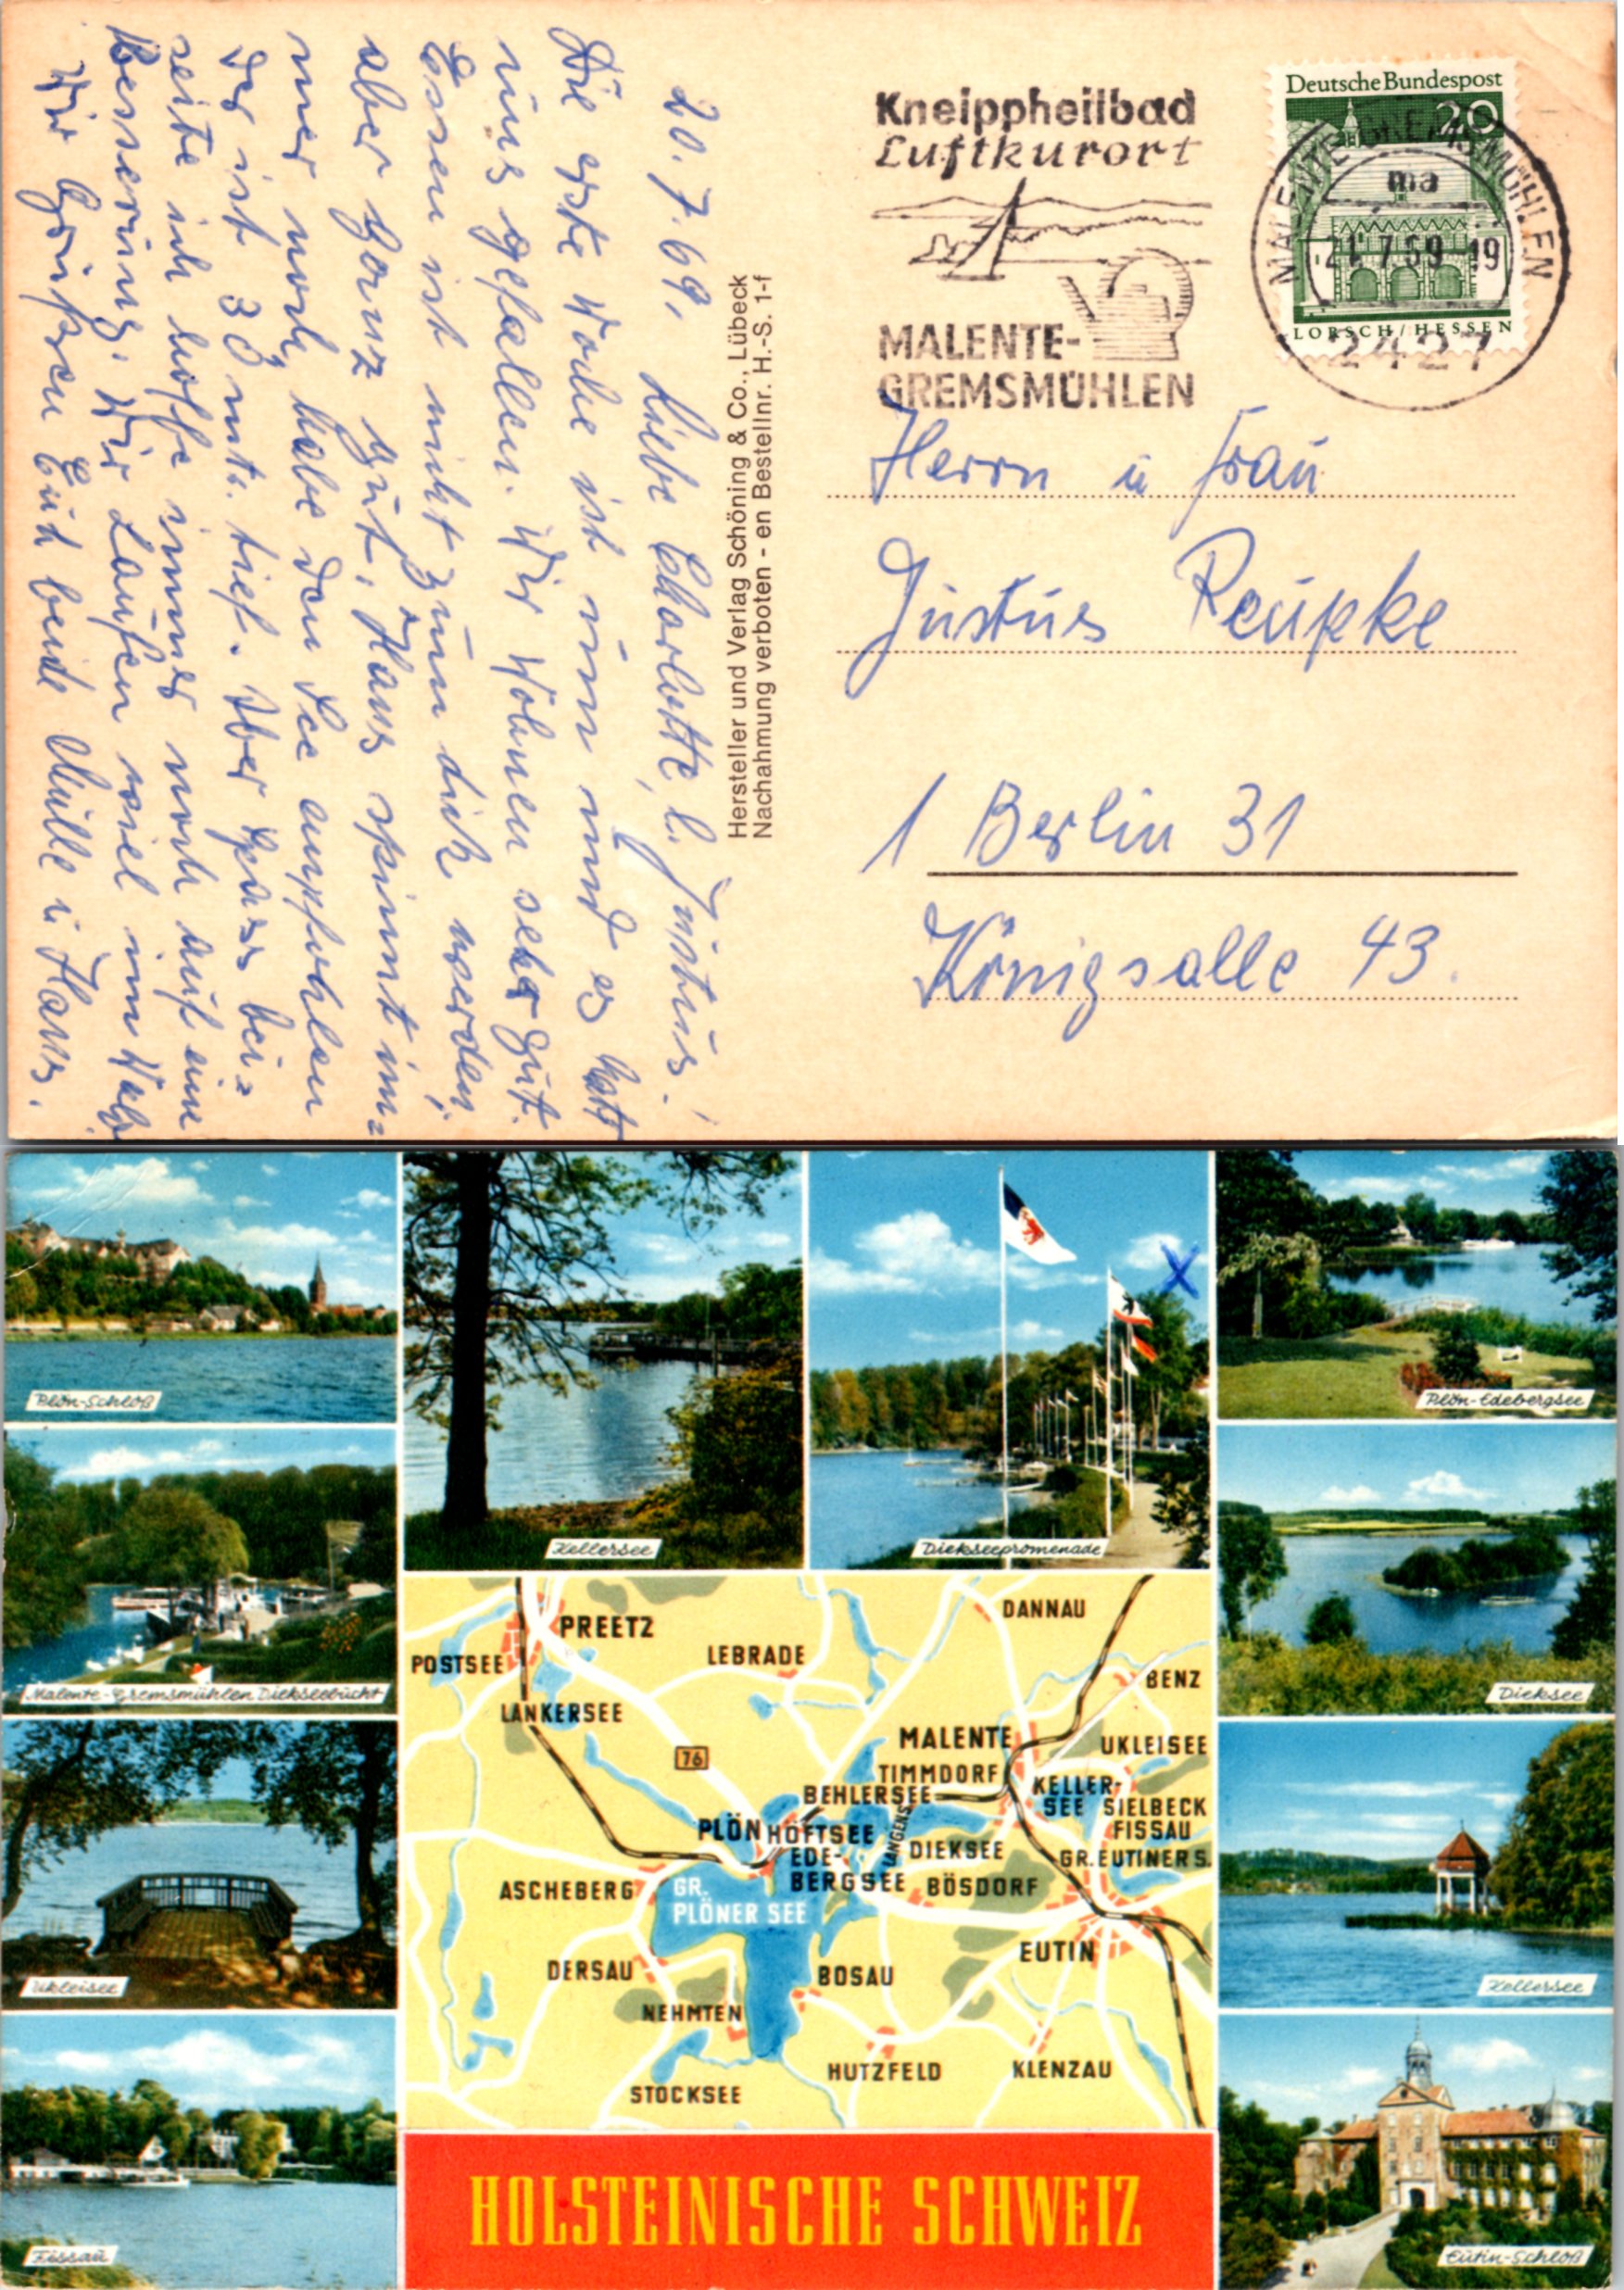 20.7.69.
Liebe Charlotte, l. Justus!
Die erste Woche ist um und es hat
uns gefallen. Wir wohnen sehr gut.
Essen ist nicht zum dick werden,
aber ganz gut, Hans spinnt im=
mer noch, habe den See empfohlen
der ist 38 mtr. tief. Aber Spass bei=
seite ich hoffe immer noch auf eine
Besserung. Wir Laufen viel im Wald.
Wir Grüßen Euch beide Mulle u Hans.
Hersteller und Verlag Schöning & Co., Lübeck
Nachahmung verboten - en Bestellnr. H.-S. 1-f
Kneippheilbad
Luftkurort
MALENTE-
GREMSMÜHLEN
Deutsche Bundespost
20
LORSCH/HESSEN
MALENTE-GREMSMÜHLEN
ma
21.7.69-19
2427
Herrn u Frau
Justus Reupke
1 Berlin 31
Königsalle 43.
Plön-Schloß
Kellersee
X
Diekseepromenade
Plön-Edebergsee
Malente-Gremsmühlen Diekseebucht
Dieksee
Ukleisee
Kellersee
Fissau
Eutin-Schloß
PREETZ
POSTSEE
LANKERSEE
LEBRADE
DANNAU
BENZ
76
MALENTE
UKLEISEE
TIMMDORF
KELLER-
SEE
SIELBECK
BEHLERSEE
FISSAU
PLÖN
HÖFTSEE
LANGENS.
DIEKSEE
GR. EUTINER S.
EDE-
BERGSEE
BÖSDORF
ASCHEBERG
GR.
PLÖNER SEE
EUTIN
DERSAU
BOSAU
NEHMTEN
HUTZFELD
KLENZAU
STOCKSEE
HOLSTEINISCHE SCHWEIZ